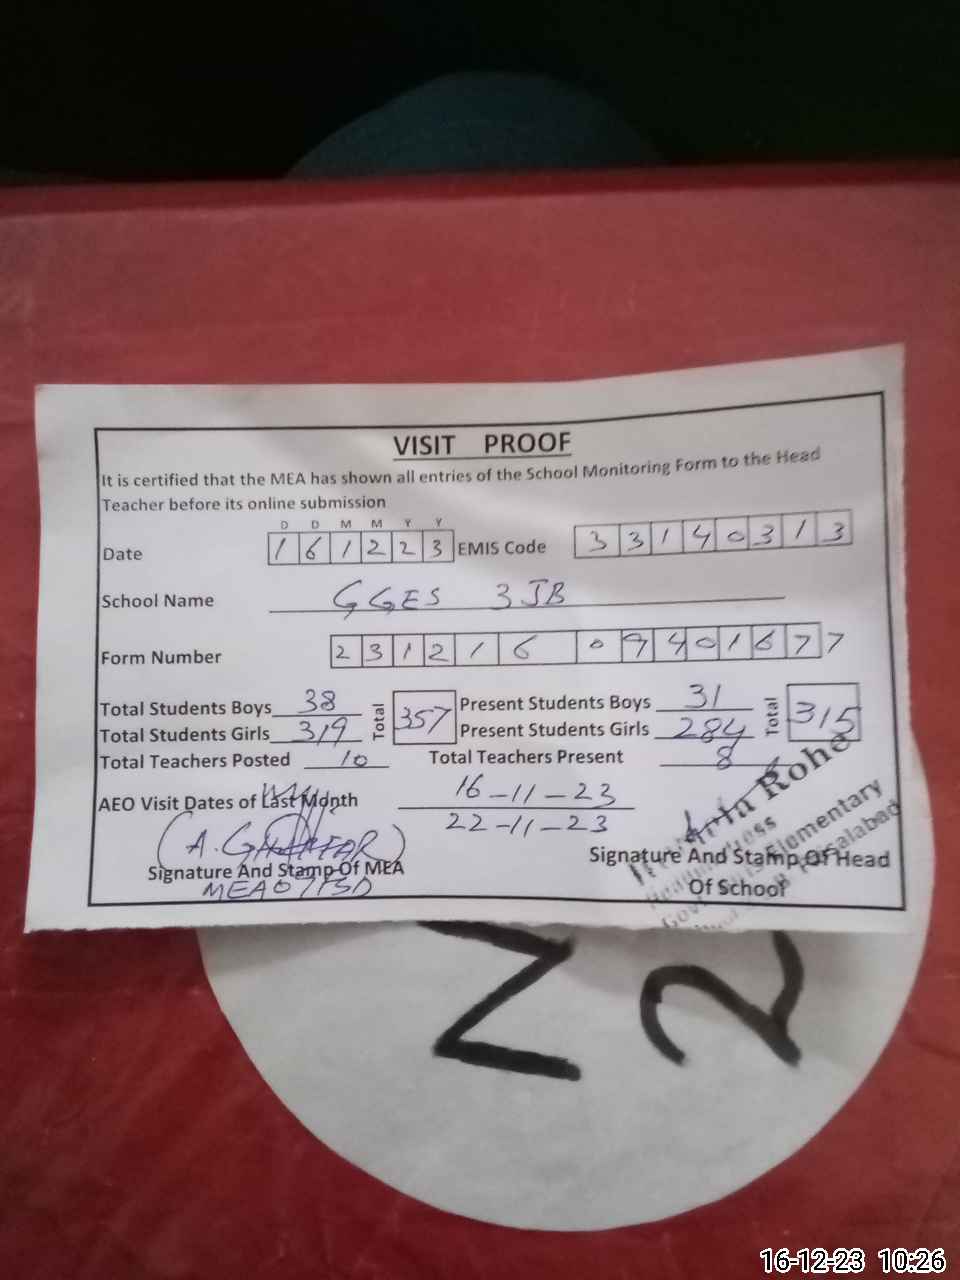 VISIT PROOF
It is certified that the MEA has shown all entries of the School Monitoring Form to the Head
Teacher before its online submission
D D M M Y Y
Date 1 6 1 2 2 3 EMIS Code 3 3 1 4 0 3 1 3
School Name GGES 3JB
Form Number 2 3 1 2 1 6 0 9 4 0 1 6 7 7
Total Students Boys 38 Total 357 Present Students Boys 31 Total 315
Total Students Girls 319 Present Students Girls 284
Total Teachers Posted 10 Total Teachers Present 8
AEO Visit Dates of Last Month 16-11-23
22-11-23
(A. GHAFFAR)
Signature And Stamp Of MEA
Signature And Stamp Of Head
Of School
Elementary
Faisalabad
2
16-12-23 10:26